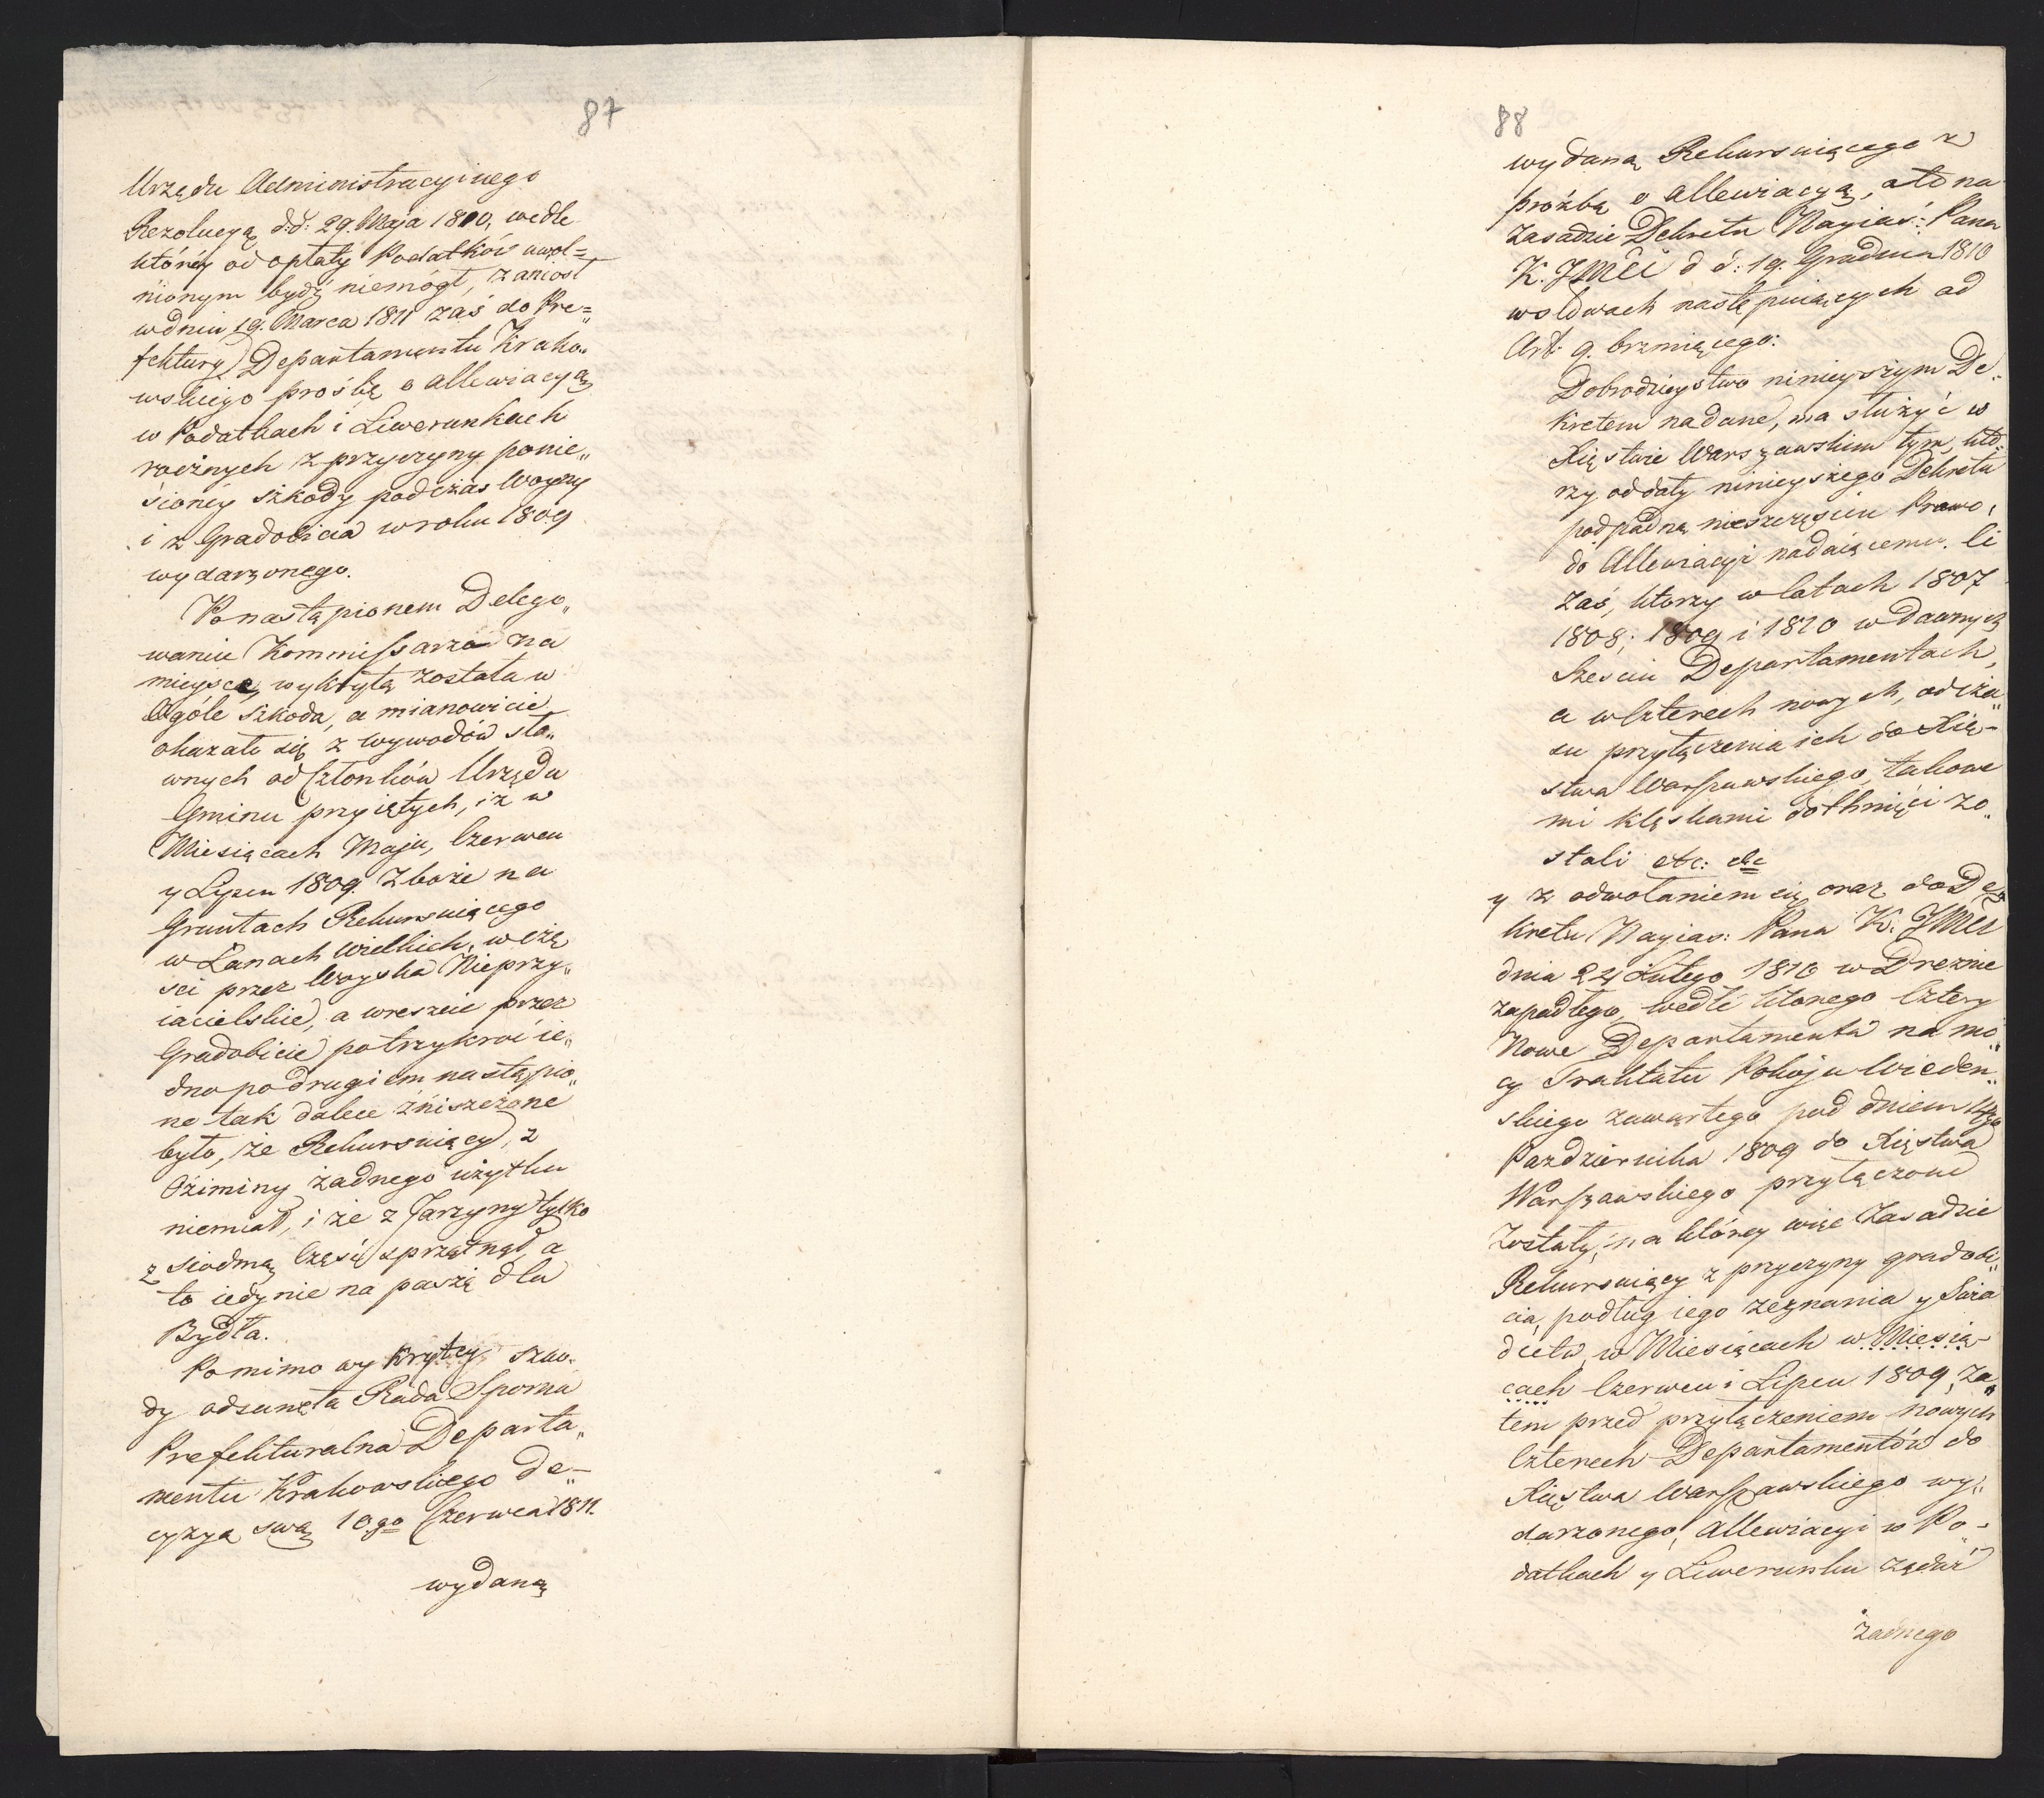 87
Urzędu Administracyinego
Rezolucyą d:d: 29. Maja 1810, wedle
któréy od opłaty Podatków uwol=
nionym bydź niemógł, zaniosł
w dniu 19. Marca 1811 zaś do Pre=
fektury Departamentu Krako„
wskiego prośbę o allewiacyą
w Podatkach i Liwerunkach
rożnych z przyczyny ponie„
sionéy szkody podczas Woyny
i z Gradobicia w roku 1809
wydarzonego.
Po nastąpionem Delego„
waniu Kommissarza na
mieysce, wykrytą została w
Ogóle szkoda, a mianowicie
okazało się z wywodów sto„
wnych od Członków Urzędu
Gminu przyiętych, iż w
Miesiącach Maju, Czerwcu
y Lipcu 1809. Zboże na
Gruntach Rekursuiącego
w Łanach Wielkich, w czę
sci przez Woyska Nieprzy„
iacielskie, a wreszcie przez
Gradobicie potrzykroć ie„
dno po drugiem nastąpio„
ne tak dalece zniszczone
było, że Rekursuiący, z
Oziminy żadnego użytku
niemiał, i że z Jarzyny tylko
z siodmą Częsć sprzątnął, a
to iedynie na paszę dla
Bydła.
Pomimo wykrytey szko„
dy odsunęła Rada Sporna
Prefekturalna Departa„
mentu Krakowskiego De„
cyzyą swą 10go Czerwca 1811.
wydaną
88
wydaną Rekursuiącego z
proźbą o allewiacyą, a to na
zasadzie Dekretu Nayiaś: Pana
K. JMCi d d: 19. Grudnia 1810
w słowach następuiących od
Art: 9. brzmiącego:
Dobrodzieystwo ninieyszym De„
kretem nadane, ma służyć w
Xięstwie Warszawskim tym, któ„
rzy od daty ninieyszego Dekretu
podpadną nieszczęściu Prawo,
do Allewiacyi nadaiącemu. Ci
zaś, ktorzy w latach 1807
1808; 1809 i 1810 w dawnych
Szesciu Departamentach,
a w Czterech nowych, od cza„
su przyłączenia ich do Xię„
stwa Warszawskiego, takowe
mi klęskami dotknięci zo„
stali etc: etc
y z odwołaniem się oraz do De„
kretu Nayias: Pana K. JMCi
dnia 24 Lutego 1810 w Dreznie
zapadłego, wedle ktorego Cztery
Nowe Departamenta na mo„
cy Traktatu Pokoju Wieden„
skiego zawartego pod dniem 14go
Pazdziernika 1809 do Xięstwa
Warszawskiego przyłączone
zostały, na któréy więc Zasadzie
Rekursuiący z przyczyny gradobi„
cia, podług iego zeznania y Swia
dectw, w Miesiącach w Miesią„
cach Czerwcu i Lipcu 1809, Za„
tem przed przyłączeniem nowych
Czterech Departamentów do
Xięstwa Warszawskiego wy„
darzonego, allewiacyi w Po„
datkach y Liwerunku żądać
żadnego